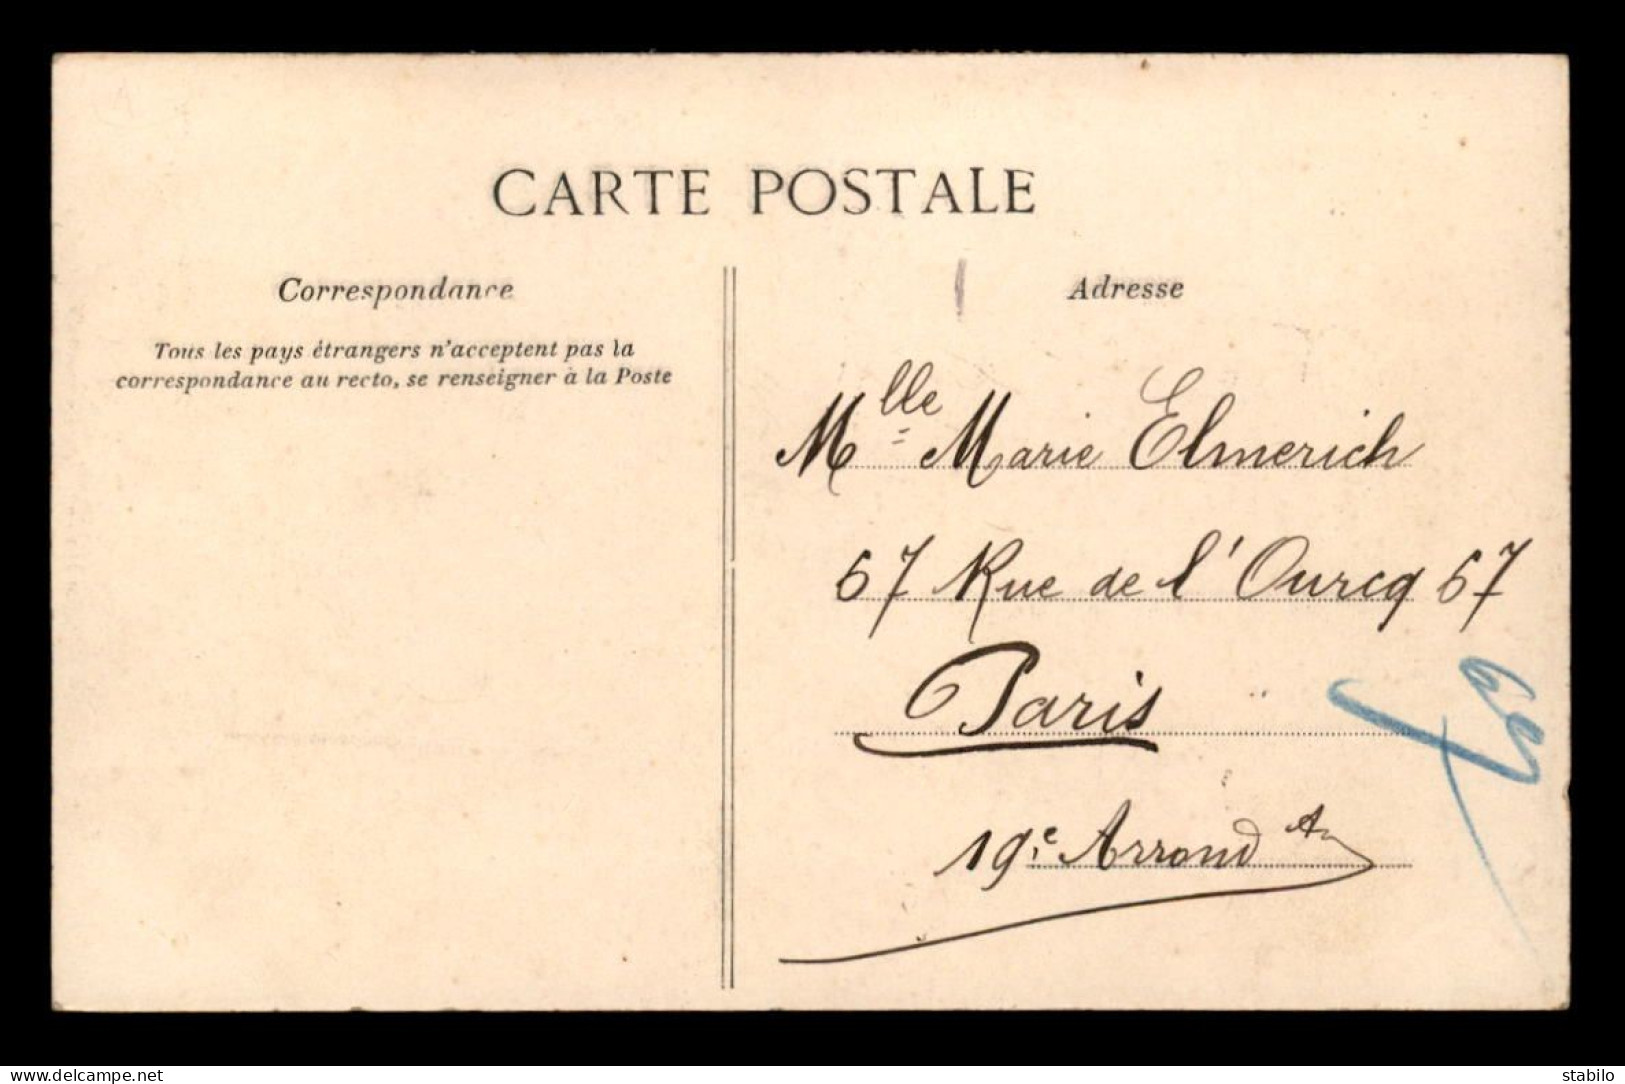 CARTE POSTALE
Correspondance
Tous les pays étrangers n'acceptent pas la
correspondance au recto, se renseigner à la Poste
Adresse
Mlle Marie Elmerich
67 Rue de l'Ourcq 67
Paris
19e Arrondt
delcampe.net
stabilo